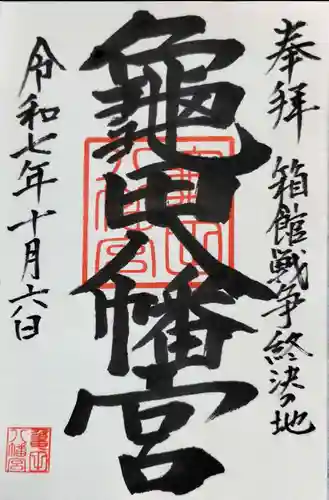 奉拝 箱館戦争終決の地
龜田八幡宮
令和七年十月六日
龜田八幡宮